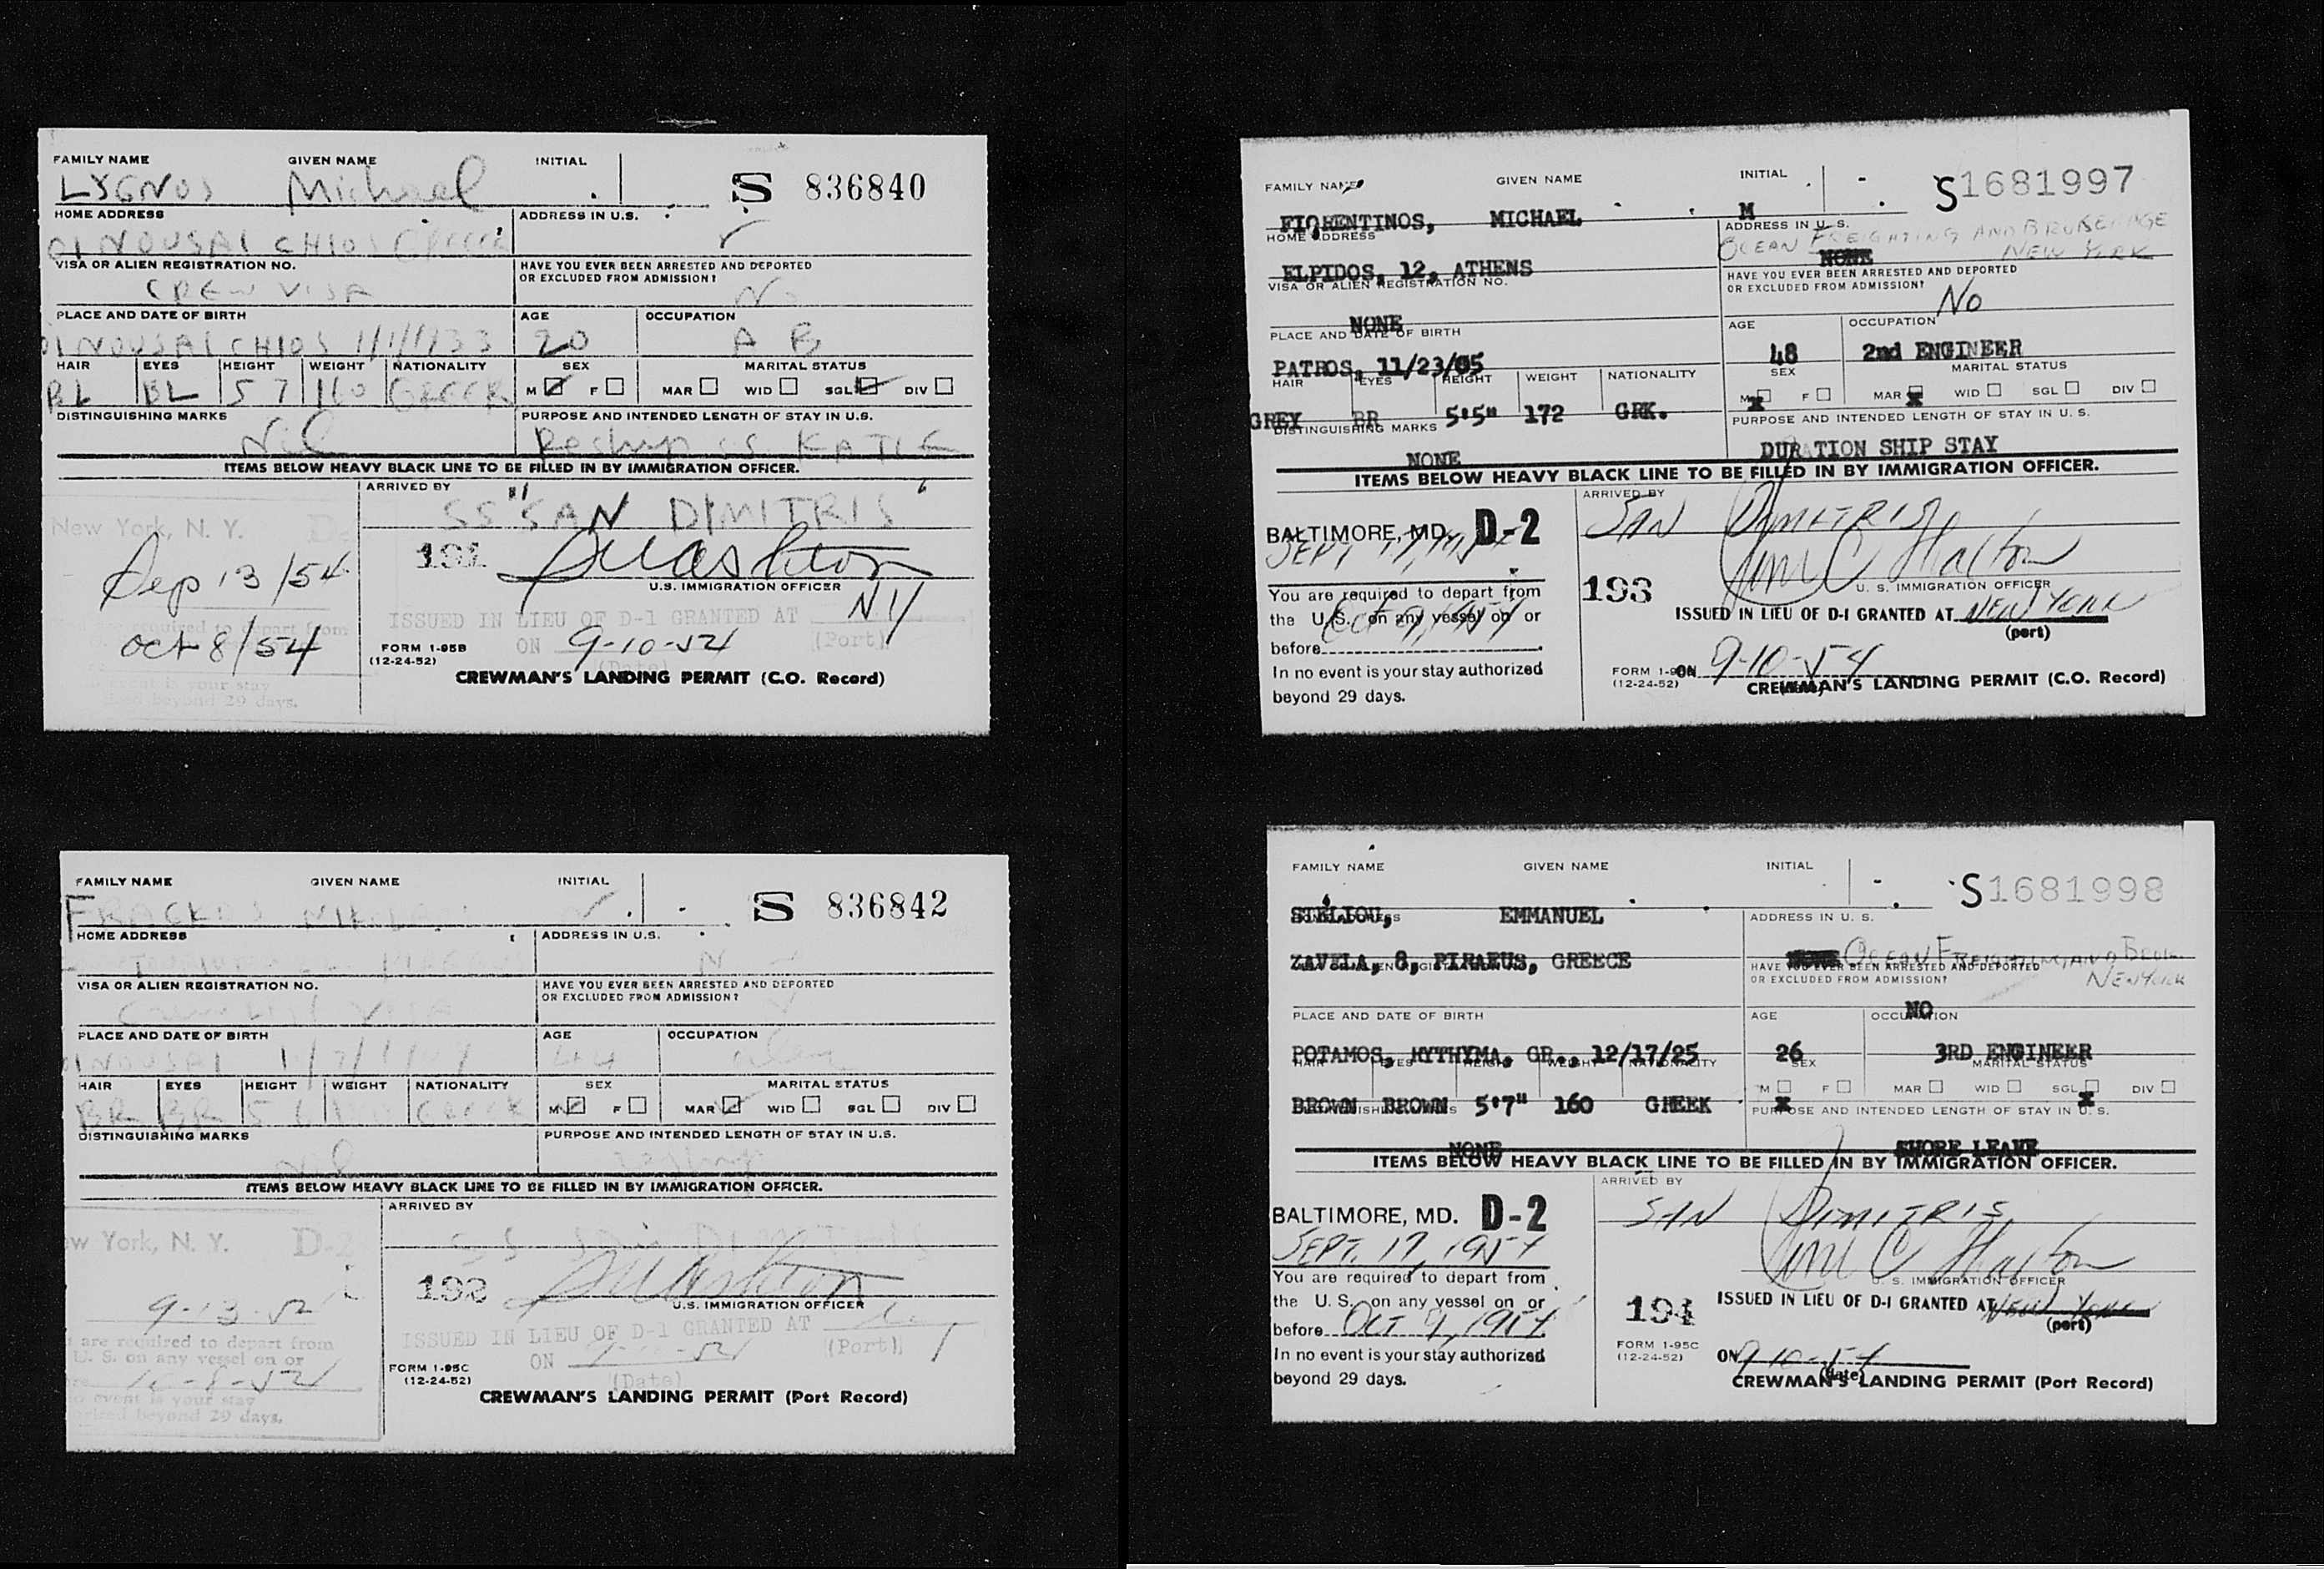 FAMILY NAME GIVEN NAME INITIAL
S 836840
LYGNOS Michael
HOME ADDRESS ADDRESS IN U.S.
OINOUSAI CHIOS GREECE
VISA OR ALIEN REGISTRATION NO. HAVE YOU EVER BEEN ARRESTED AND DEPORTED
OR EXCLUDED FROM ADMISSION?
CREW VISA No
PLACE AND DATE OF BIRTH AGE OCCUPATION
OINOUSAI CHIOS 1/1/1933 20 A B
HAIR EYES HEIGHT WEIGHT NATIONALITY SEX MARITAL STATUS
BL BL 5 7 160 GREEK M F MAR WID SGL DIV
DISTINGUISHING MARKS PURPOSE AND INTENDED LENGTH OF STAY IN U.S.
Nil Reship SS KATIE
ITEMS BELOW HEAVY BLACK LINE TO BE FILLED IN BY IMMIGRATION OFFICER.
ARRIVED BY
SS "SAN DIMITRIS"
New York, N. Y. D-
Sep 13/54
191
U.S. IMMIGRATION OFFICER
required to depart from
ISSUED IN LIEU OF D-1 GRANTED AT NY
(Port)
oct 8/54
ON 9-10-54
(Date)
FORM 1-95B
(12-24-52)
event is your stay
beyond 29 days.
CREWMAN'S LANDING PERMIT (C.O. Record)
FAMILY NAME GIVEN NAME INITIAL
S1681997
FIORENTINOS, MICHAEL M
HOME ADDRESS ADDRESS IN U. S.
OCEAN FREIGHTING AND BROKERAGE
NEW YORK
NONE
ELPIDOS, 12, ATHENS
VISA OR ALIEN REGISTRATION NO. HAVE YOU EVER BEEN ARRESTED AND DEPORTED
OR EXCLUDED FROM ADMISSION?
NONE No
PLACE AND DATE OF BIRTH AGE OCCUPATION
PATROS, 11/23/05 48 2nd ENGINEER
HAIR EYES HEIGHT WEIGHT NATIONALITY SEX MARITAL STATUS
M X F MAR X WID SGL DIV
GREY BR 5'5" 172 GRK.
DISTINGUISHING MARKS PURPOSE AND INTENDED LENGTH OF STAY IN U. S.
NONE DURATION SHIP STAY
ITEMS BELOW HEAVY BLACK LINE TO BE FILLED IN BY IMMIGRATION OFFICER.
ARRIVED BY
SAN DIMITRIS
BALTIMORE, MD. D-2
SEPT 17, 1954
Wm C Halton
U. S. IMMIGRATION OFFICER
193
You are required to depart from
the U. S. on any vessel on or
before OCT 9, 1954
In no event is your stay authorized
beyond 29 days.
ISSUED IN LIEU OF D-1 GRANTED AT NEW YORK
(port)
ON 9-10-54
FORM 1-95
(12-24-52)
CREWMAN'S LANDING PERMIT (C.O. Record)
FAMILY NAME GIVEN NAME INITIAL
S 836842
HOME ADDRESS ADDRESS IN U.S.
VISA OR ALIEN REGISTRATION NO. HAVE YOU EVER BEEN ARRESTED AND DEPORTED
OR EXCLUDED FROM ADMISSION?
VISA
PLACE AND DATE OF BIRTH AGE OCCUPATION
OINOUSAI 44
HAIR EYES HEIGHT WEIGHT NATIONALITY SEX MARITAL STATUS
BR BR 5 6 GREEK M F MAR WID SGL DIV
DISTINGUISHING MARKS PURPOSE AND INTENDED LENGTH OF STAY IN U.S.
Nil Reship
ITEMS BELOW HEAVY BLACK LINE TO BE FILLED IN BY IMMIGRATION OFFICER.
ARRIVED BY
SS San DIMITRIS
York, N. Y. D-2
9-13-54
192
U.S. IMMIGRATION OFFICER
are required to depart from
U. S. on any vessel on or
10-8-54
event is your stay
beyond 29 days.
ISSUED IN LIEU OF D-1 GRANTED AT
(Port)
ON
(Date)
FORM 1-95C
(12-24-52)
CREWMAN'S LANDING PERMIT (Port Record)
FAMILY NAME GIVEN NAME INITIAL
S1681998
STELIOU, EMMANUEL
ADDRESS IN U. S.
NONE OCEAN FREIGHTING AND
NEW YORK
ZAVELA, 8, PIRAEUS, GREECE
HAVE YOU EVER BEEN ARRESTED AND DEPORTED
OR EXCLUDED FROM ADMISSION?
NO
PLACE AND DATE OF BIRTH AGE OCCUPATION
POTAMOS, MYTHYMA, GR., 12/17/25 26 3RD ENGINEER
HAIR EYES HEIGHT WEIGHT NATIONALITY SEX MARITAL STATUS
M X F MAR WID SGL X DIV
BROWN BROWN 5'7" 160 GREEK
PURPOSE AND INTENDED LENGTH OF STAY IN U. S.
NONE SHORE LEAVE
ITEMS BELOW HEAVY BLACK LINE TO BE FILLED IN BY IMMIGRATION OFFICER.
ARRIVED BY
SAN DIMITRIS
BALTIMORE, MD. D-2
SEPT. 17, 1954
Wm C Halton
U. S. IMMIGRATION OFFICER
194
You are required to depart from
the U. S. on any vessel on or
before OCT 9, 1954
In no event is your stay authorized
beyond 29 days.
ISSUED IN LIEU OF D-1 GRANTED AT NEW YORK
(port)
FORM 1-95C
(12-24-52)
ON 9-10-54
(date)
CREWMAN'S LANDING PERMIT (Port Record)